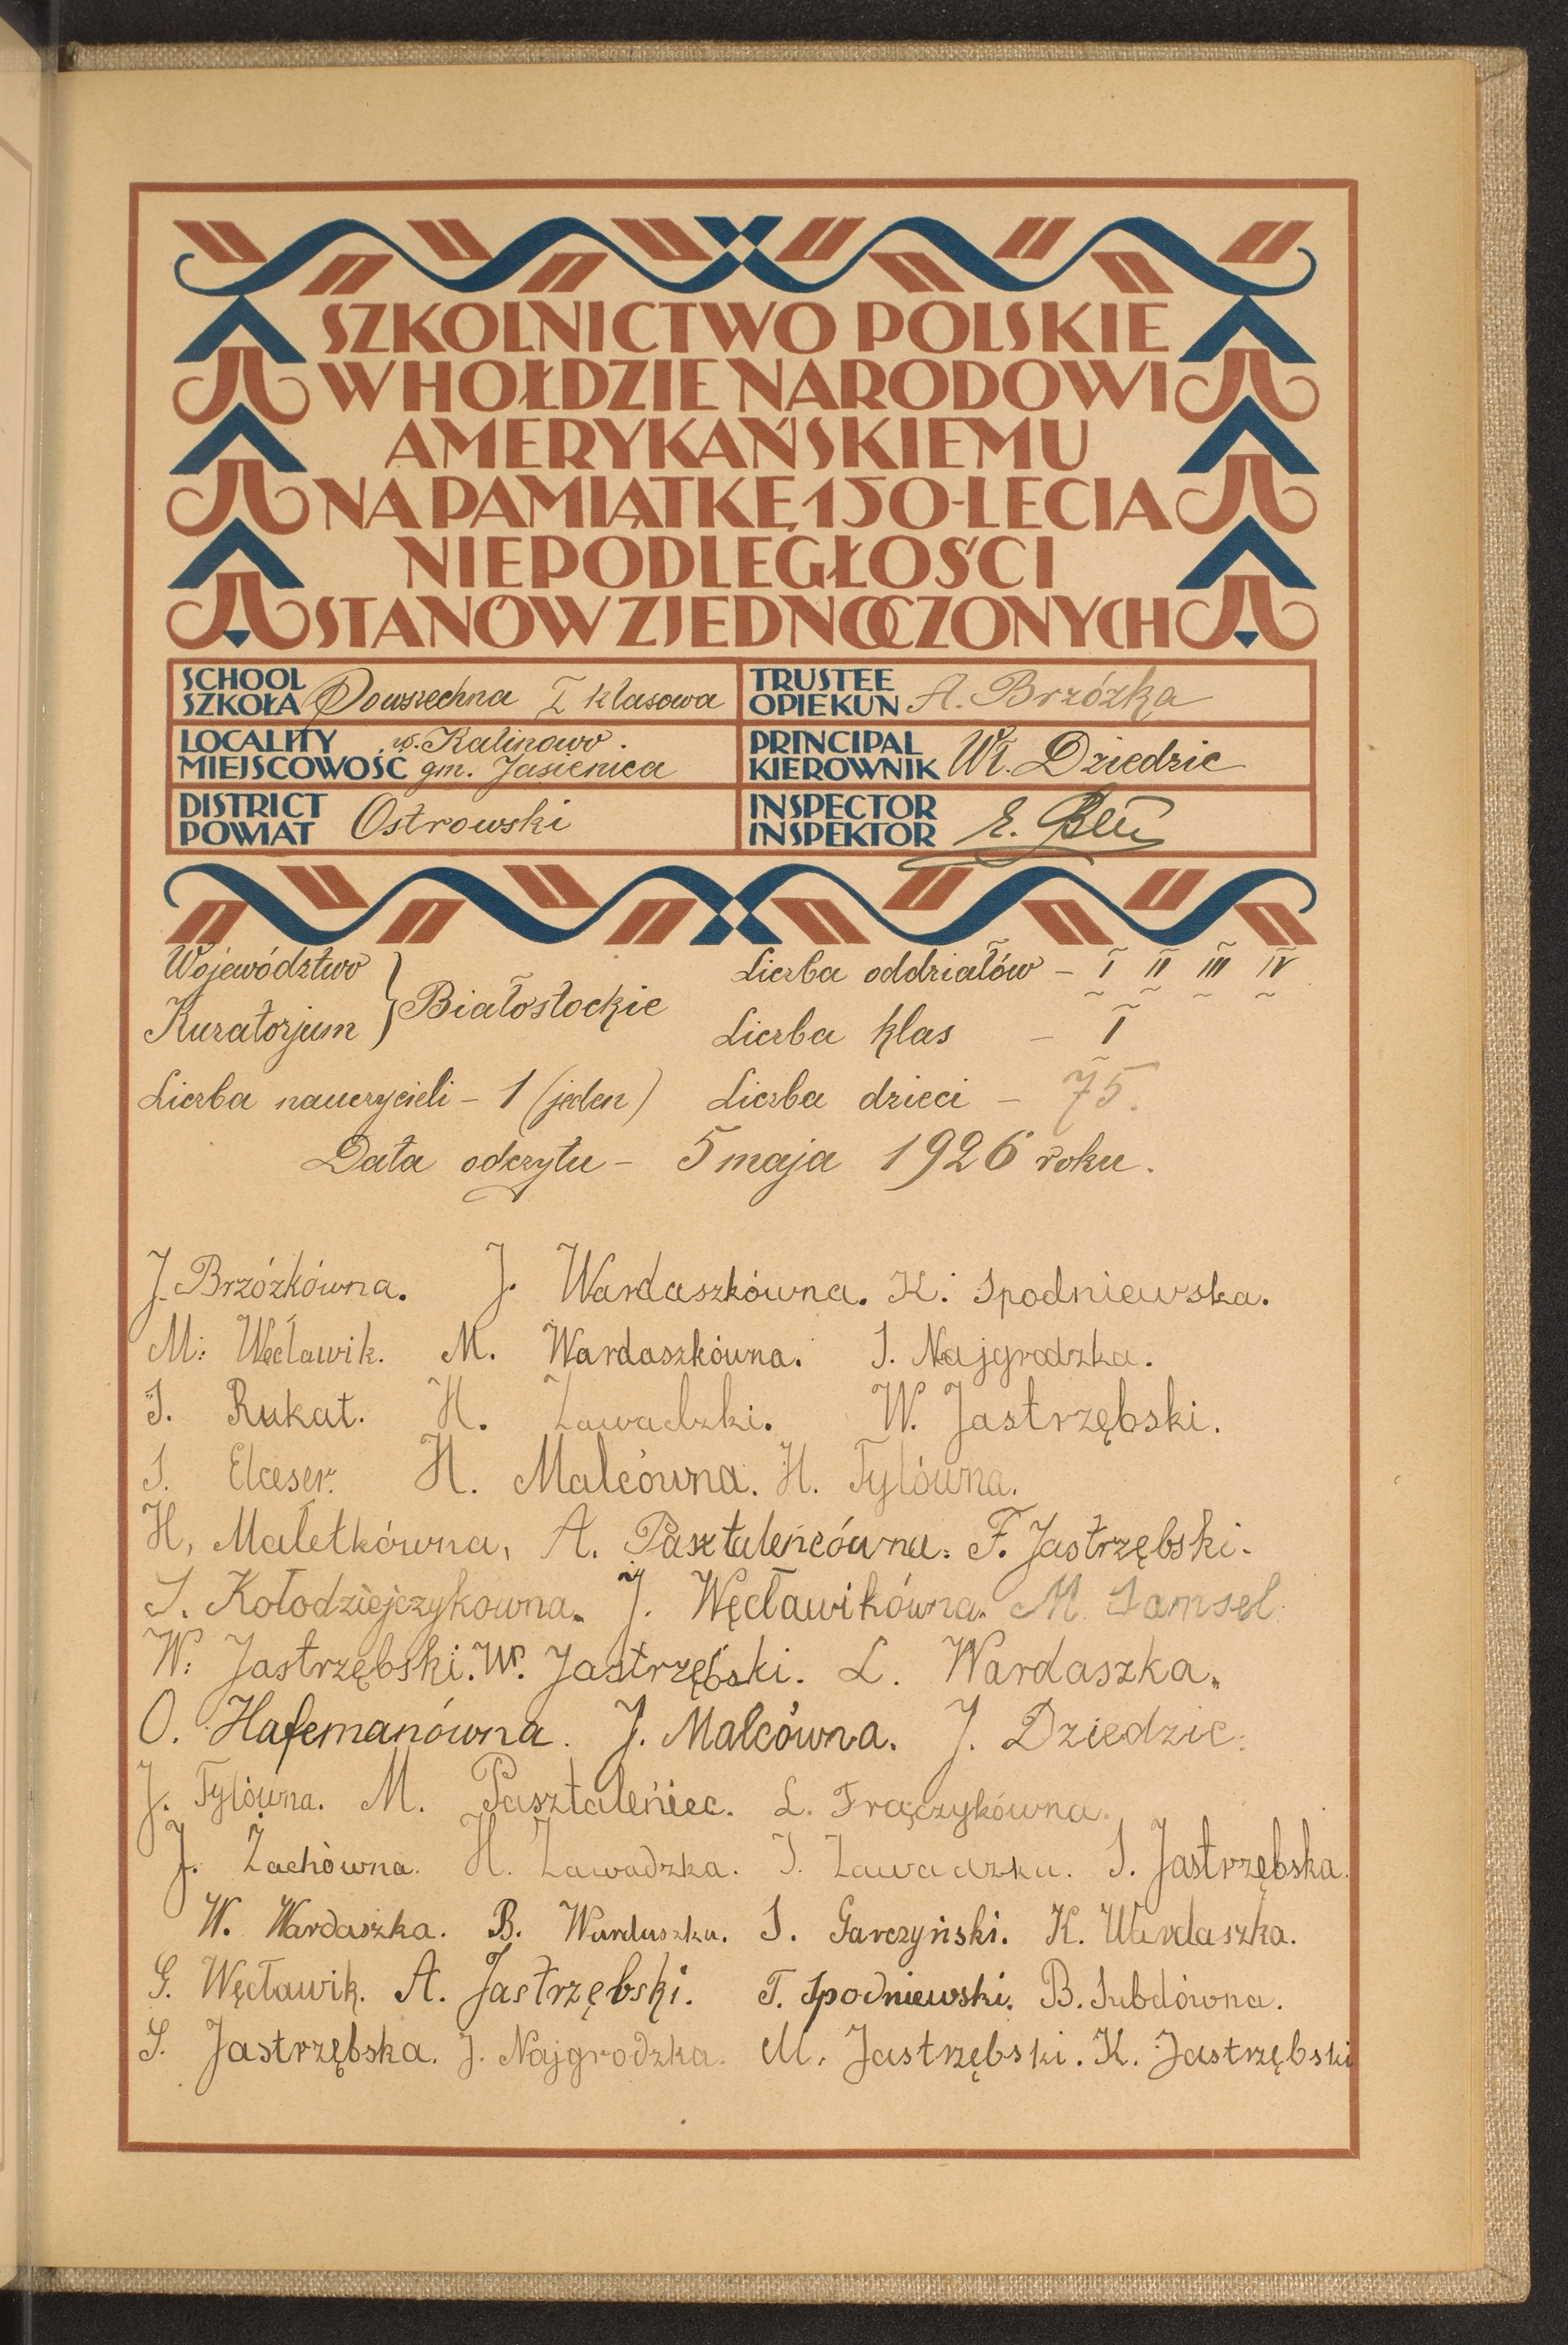 SZKOLNICTWO POLSKIE
W HOŁDZIE NARODOWI
AMERYKAŃSKIEMU
NA PAMIĄTKĘ 150-LECIA
NIEPODLEGŁOŚCI
STANÓW ZJEDNOCZONYCH
SCHOOL
SZKOŁA Powszechna I klasowa
TRUSTEE
OPIEKUN A. Brzózka
LOCALITY w. Kalinowo.
MIEJSCOWOŚĆ gm. Jasienica
PRINCIPAL
KIEROWNIK Wł. Dziedzic
DISTRICT
POWIAT Ostrowski
INSPECTOR
INSPEKTOR E.
Województwo
Kuratorjum } Białostockie
Liczba oddziałów – I II III IV
Liczba klas – I
Liczba nauczycieli – 1 (jeden) Liczba dzieci – 75.
Data odczytu – 5 maja 1926 roku.
J. Brzózkówna. J. Wardaszkówna. K. Spodniewska.
M. Węcławik. M. Wardaszkówna. S. Najgrodzka.
S. Rukat. H. Zawadzki. W. Jastrzębski.
S. Elceser. H. Malcówna. H. Tylówna.
H. Małetkówna, A. Pasztaleńcówna. F. Jastrzębski.
S. Kołodziejczykowna. J. Węcławikówna. M. Samsel.
W. Jastrzębski. W. Jastrzębski. L. Wardaszka.
O. Hafemanówna. J. Malcówna. J. Dziedzic.
J. Tylówna. M. Pasztaleńiec. L. Frączykówna.
J. Żachówna. H. Zawadzka. J. Zawadzka. S. Jastrzębska.
W. Wardaszka. B. Wardaszka. S. Garczyński. K. Wardaszka.
G. Węcławik. A. Jastrzębski. T. Spodniewski. B. Subdówna.
S. Jastrzębska. J. Najgrodzka. M. Jastrzębski. K. Jastrzębski